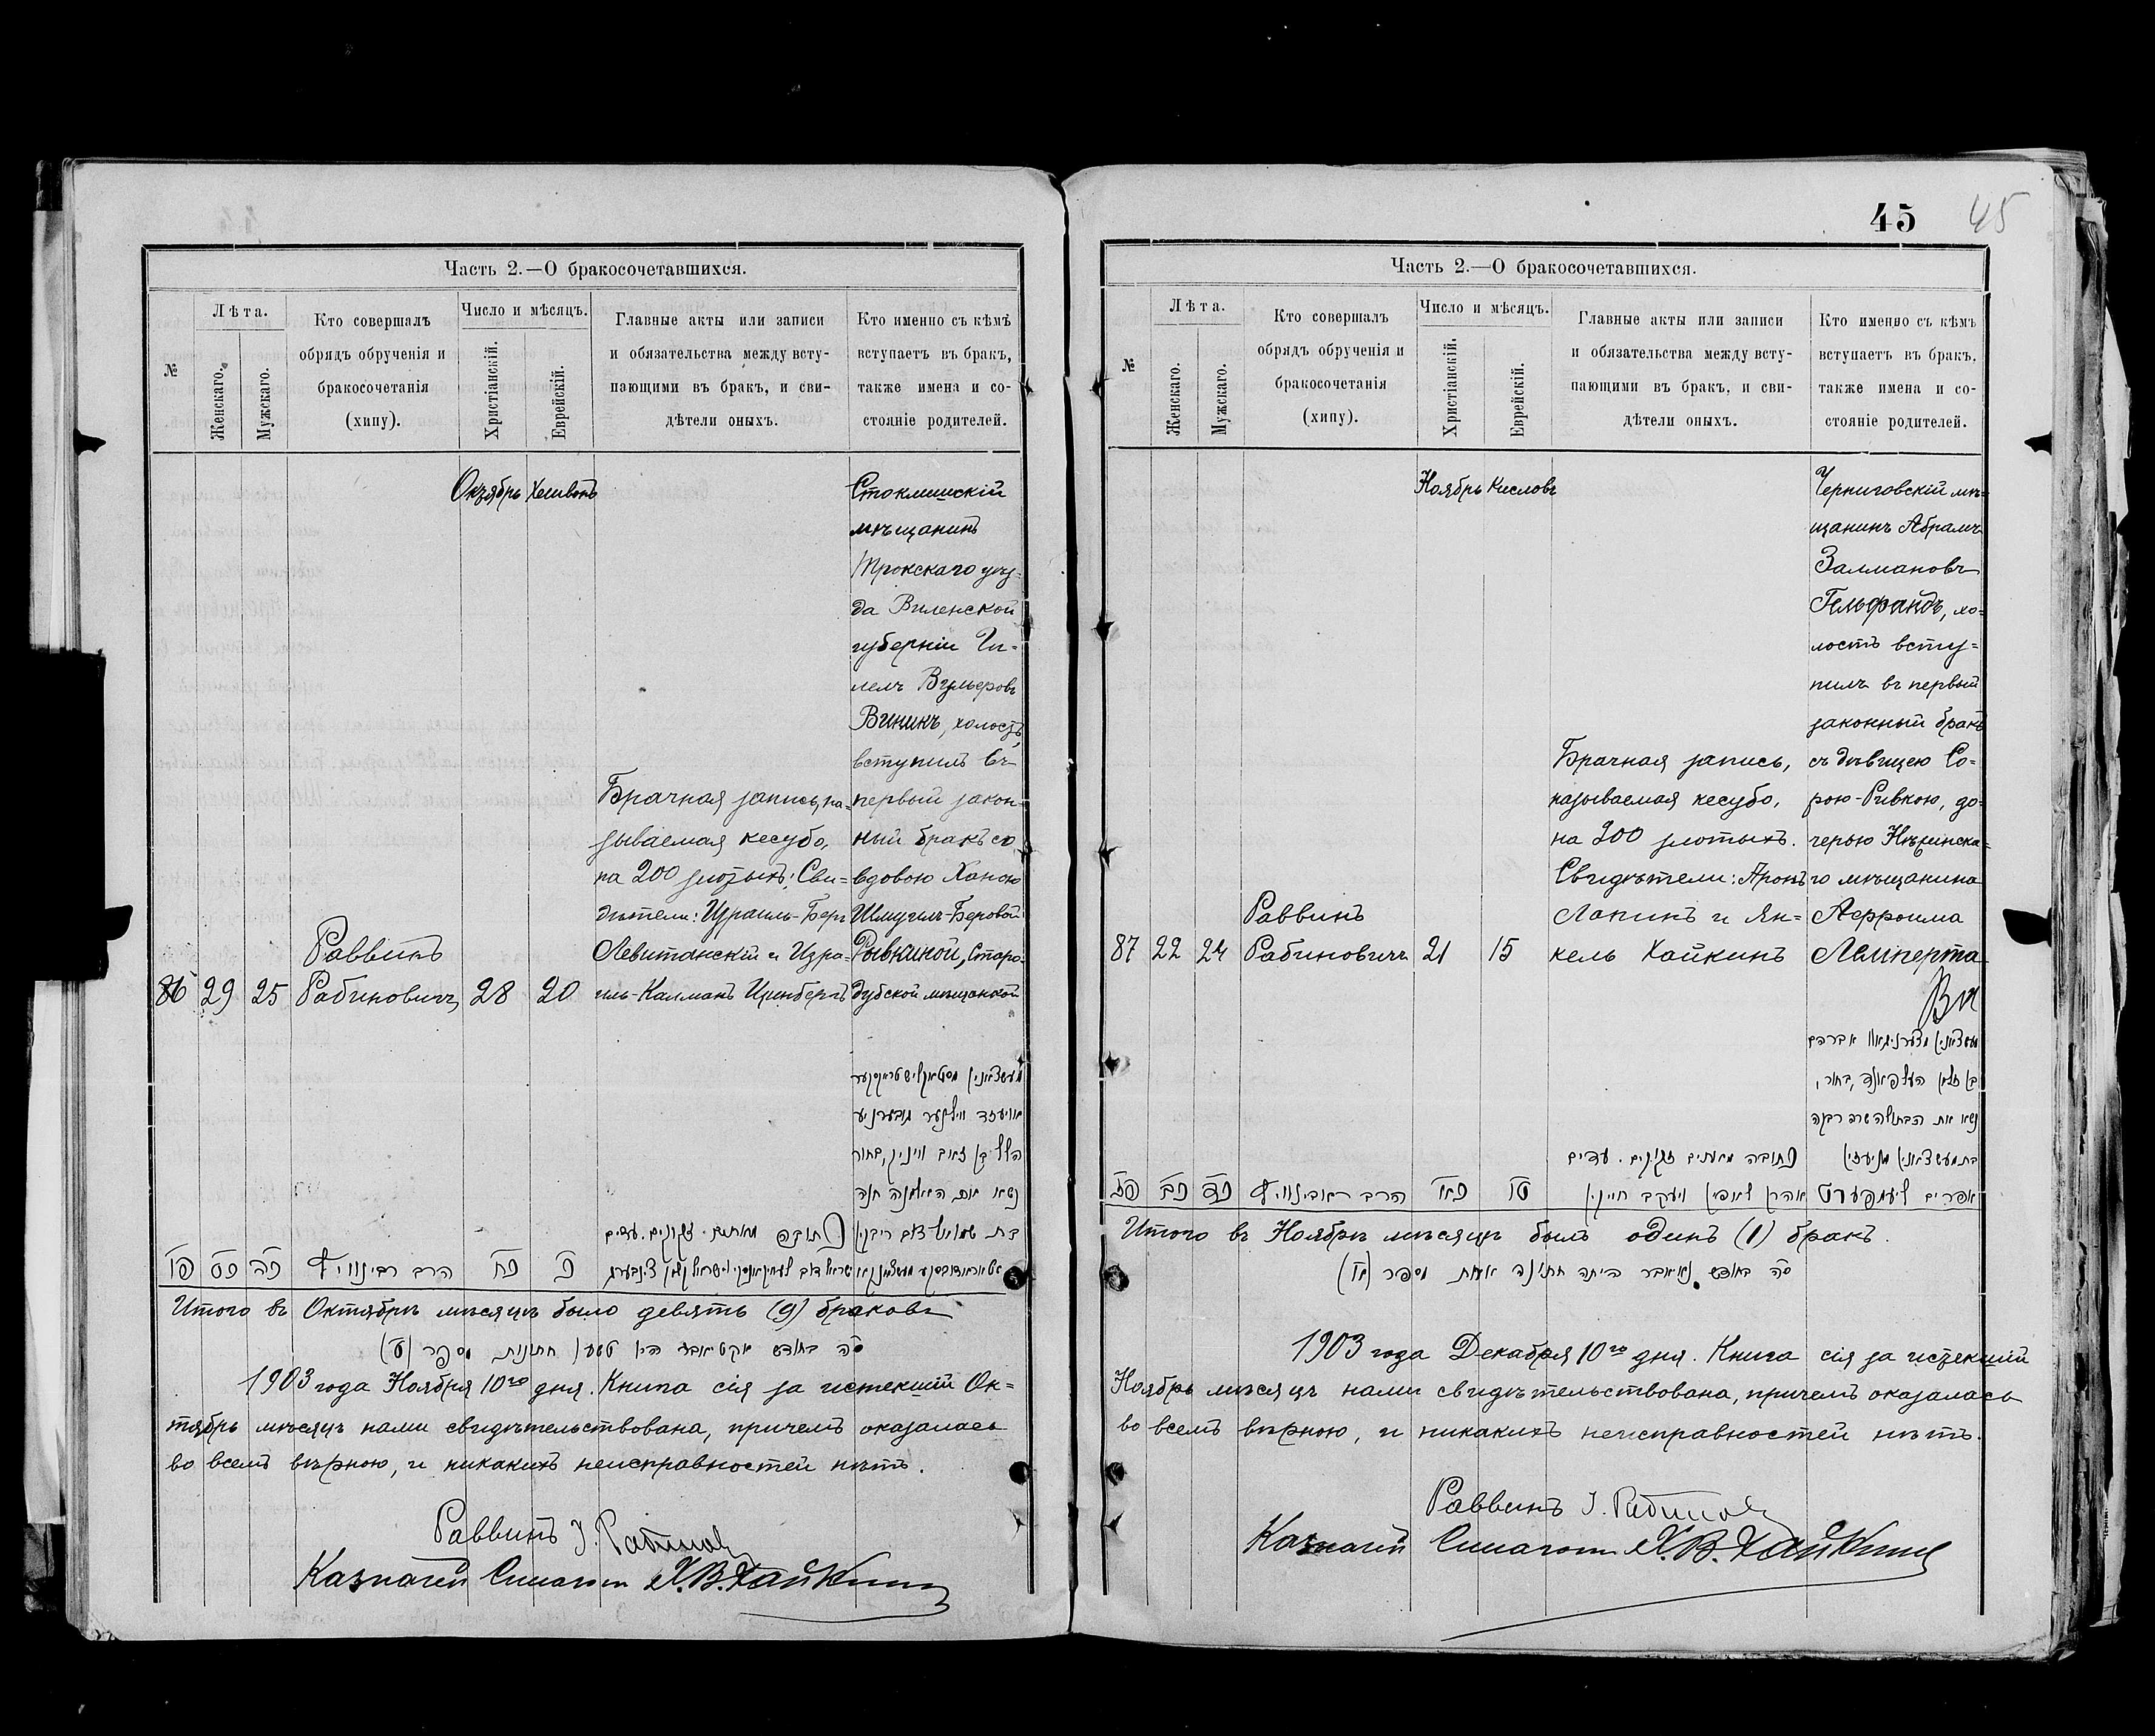 Часть 2.—О бракосочетавшихся.
№
Лѣта.
Женскаго.
Мужскаго.
Кто совершалъ
обрядъ обрученія и
бракосочетанія
(хипу).
Число и мѣсяцъ.
Христіанскій.
Еврейскій.
Главные акты или записи
и обязательства между всту-
пающими въ бракъ, и сви-
дѣтели оныхъ.
Кто именно съ кѣмъ
вступаетъ въ бракъ,
также имена и со-
стояніе родителей.
Октябрь Хешвонъ
86 29 25
Раввинъ
Рабиновичъ
28 20
Брачная запись, на-
зываемая кесубо,
на 200 злотыхъ; Сви-
дѣтели: Израиль-Беръ
Левитанскій и Изра-
иль-Калманъ Цинбергъ
Стоклишскій
мѣщанинъ
Трокскаго уѣз-
да Виленской
губерніи Ги-
лелъ Вульфовъ
Виникъ, холостъ,
вступилъ въ
первый закон-
ный бракъ со
вдовою Ханою
Шмуилъ-Беровой
Рывкиной, Старо-
дубской мѣщанкой
הלל בן זאב וויניק, בחור
נשא את האלמנה חנה
כתובה מאתים זקוקים. עדים
פו כט כה הרב רבינוויץ כח כ
Итого въ Октябрѣ мѣсяцѣ было девять (9) браковъ
1903 года Ноября 10го дня. Книга сія за истекшій Ок-
тябрь мѣсяцъ нами свидѣтельствована, причемъ оказалась
во всемъ вѣрною, и никакихъ неисправностей нѣтъ.
Раввинъ І. Рабинов
Казначей Синагоги Х.В.Хайкинъ
45 45
Часть 2.—О бракосочетавшихся.
№
Лѣта.
Женскаго.
Мужскаго.
Кто совершалъ
обрядъ обрученія и
бракосочетанія
(хипу).
Число и мѣсяцъ.
Христіанскій.
Еврейскій.
Главные акты или записи
и обязательства между всту-
пающими въ бракъ, и сви-
дѣтели оныхъ.
Кто именно съ кѣмъ
вступаетъ въ бракъ,
также имена и со-
стояніе родителей.
Ноябрь Кисловъ
87 22 24
Раввинъ
Рабиновичъ
21 15
Брачная запись,
называемая кесубо,
на 200 злотыхъ.
Свидѣтели: Аронъ
Лапинъ и Ян-
кель Хайкинъ
Черниговскій мѣ-
щанинъ Абрамъ
Залмановъ
Гельфандъ, хо-
лостъ всту-
пилъ въ первый
законный бракъ
съ дѣвицею Со-
рою-Ривкою, до-
черью Нѣжинска-
го мѣщанина
Аефроима
Лемперта
בן זלמן העלפאנד, בחור,
נשא את הבתולה שרה רבקה
כתובה מאתים זקוקים. עדים
פז כב כד הרב ראבינוויץ כא טו אהרן לאפין ויעקב חייקין אפרים לעמפערט
Итого въ Ноябрѣ мѣсяцѣ былъ одинъ (1) бракъ.
סה בחודש נאיאבר היתה חתונה אחת מספר (א)
1903 года Декабря 10го дня. Книга сія за истекшій
Ноябрь мѣсяцъ нами свидѣтельствована, причемъ оказалась
во всемъ вѣрною, и никакихъ неисправностей нѣтъ.
Раввинъ І. Рабинов
Казначей Синагоги Х.В.Хайкинъ